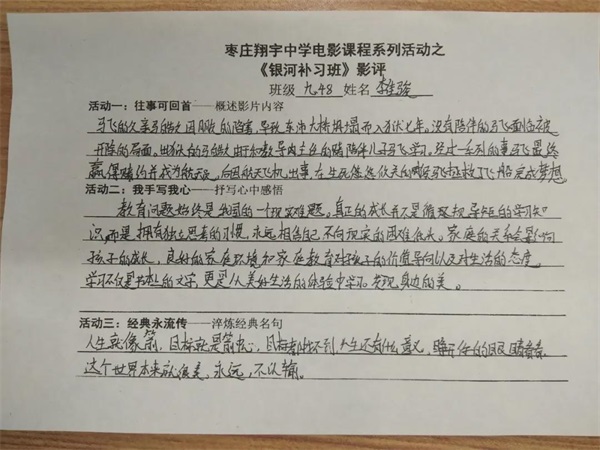 枣庄翔宇中学电影课程系列活动之
《银河补习班》影评
班级 九.48 姓名 李佳骏
活动一：往事可回首——概述影片内容
马飞的父亲马皓文因 的陷害，导致东沛大桥坍塌而入狱七年。没有陪伴的马飞面临被
开除的局面。出狱的马皓文 和教导内主任的赌陪伴儿子马飞学习。经过一系列的事马飞最终
赢得 并成为航天员。后因航天飞机出事，在生死 父亲的 马飞拯救了飞船完成梦想
活动二：我手写我心——抒写心中感悟
教育问题始终是我国的一个现实难题。真正的成长并不是循规蹈矩的学习知
识，而是拥有独立思考的习惯，永远相信自己不向现实的困难低头。家庭的关系会影响
孩子的成长，良好的家庭环境和家庭教育对孩子的价值导向以及对生活的态度。
学习不仅是书本上的文字，更是从美好生活的体验中学习。发现身边的美。
活动三：经典永流传——淬炼经典名句
人生就像箭，目标就是箭心，目标都找不到，人生还有什么意义，睁开你的眼 瞧瞧
这个世界本来就很美，永远，不认输。